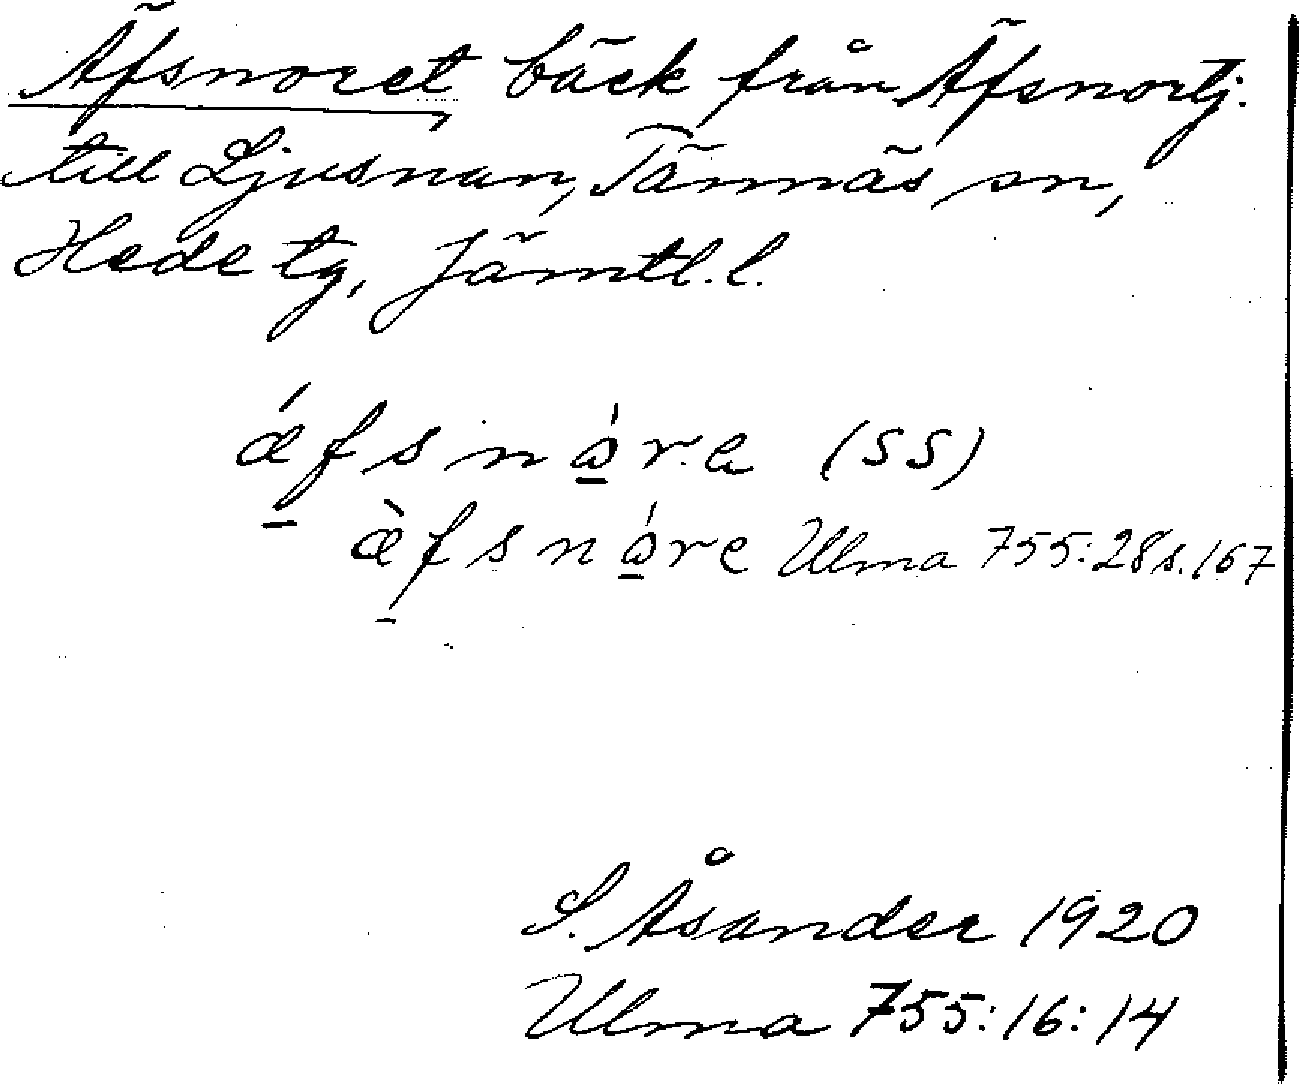 Äfsnoret, bäck från Äfsnortj.
till Ljusnan, Tännäs sn,
Hede tg, Jämtl. l.
ǽfsnǫ́re (SS)
æ̀fsnǫ́re Ulma 755:28 s. 167
S. Åsander 1920
Ulma 755:16:14